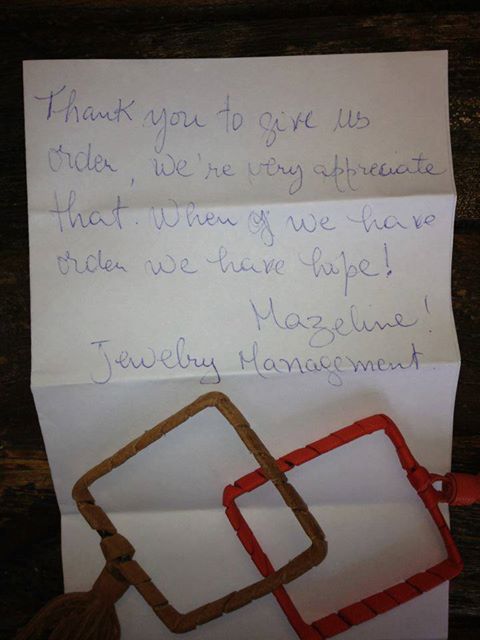 Thank you to give us
order, we're very appreciate
that. When we have
order we have hope!
Mazeline!
Jewelry Management